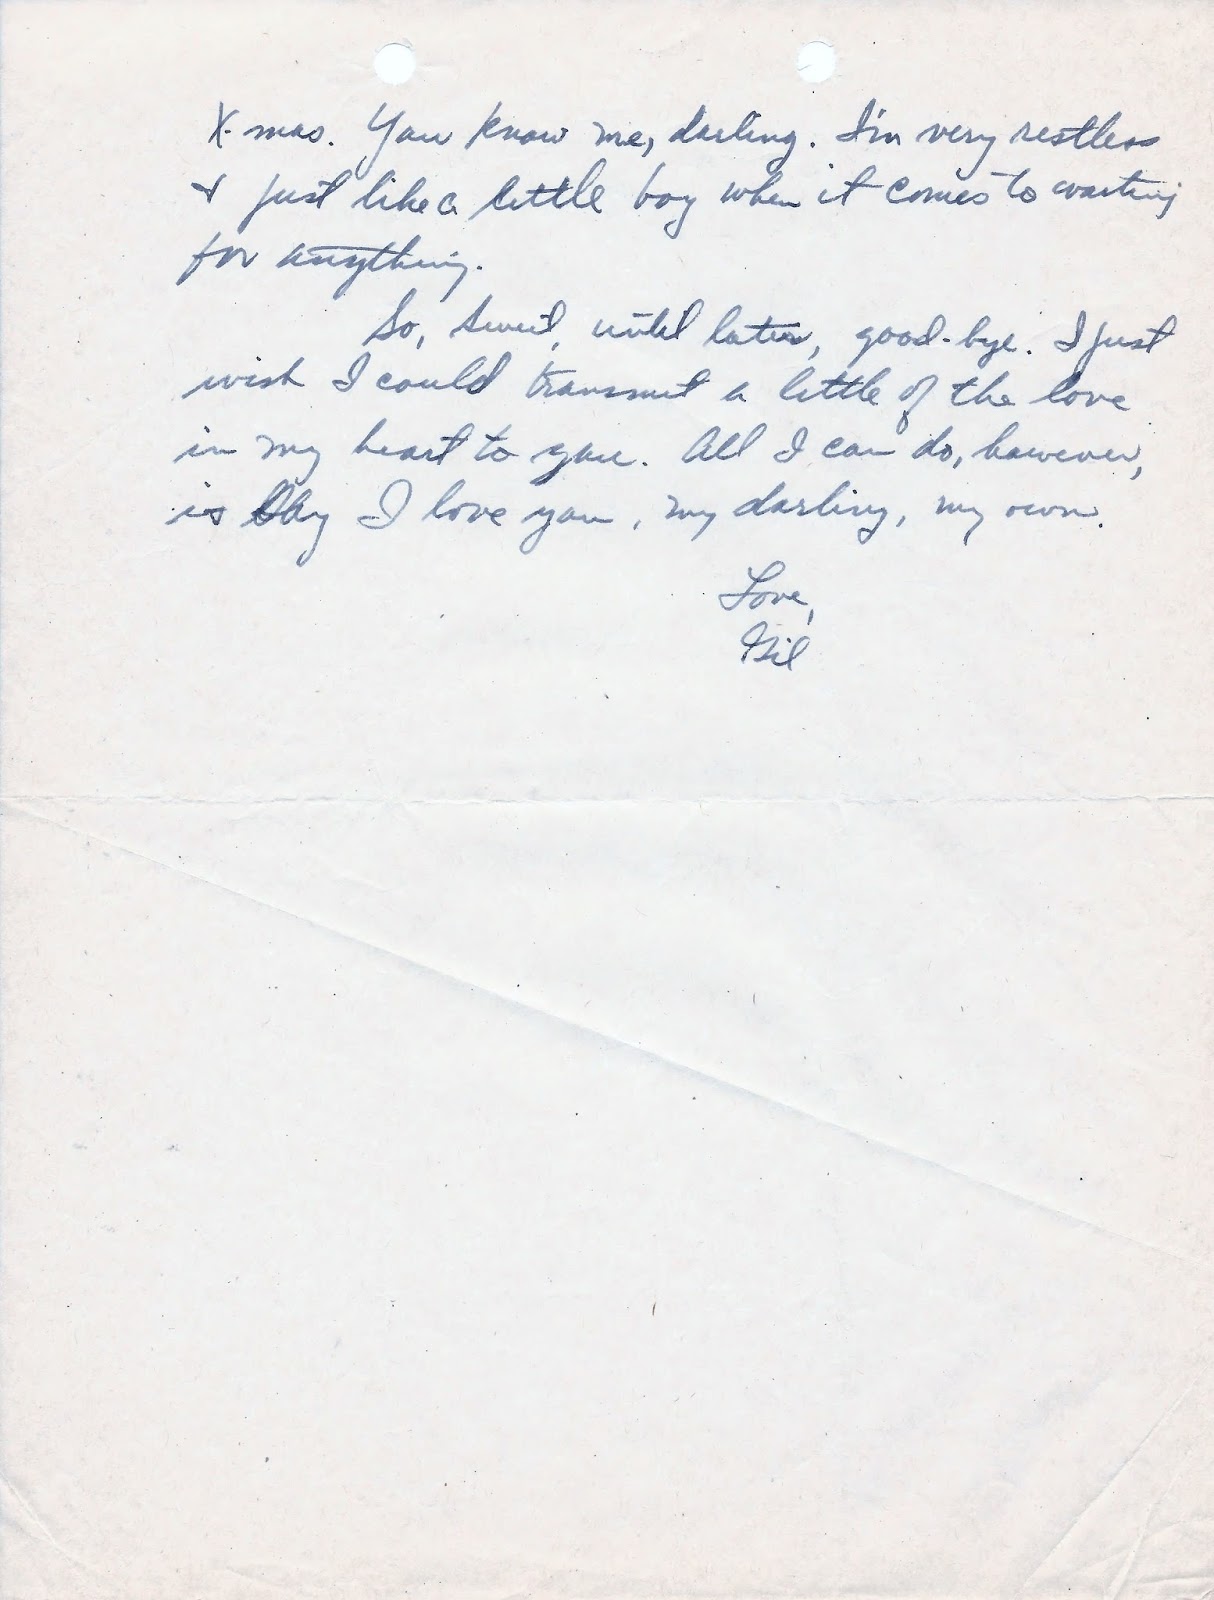 X-mas. You know me, darling. I'm very restless
& just like a little boy when it comes to waiting
for anything.
So, Sweet, until later, good-bye. I just
wish I could transmit a little of the love
in my heart to you. All I can do, however,
is say I love you, my darling, my own.
Love,
Gil